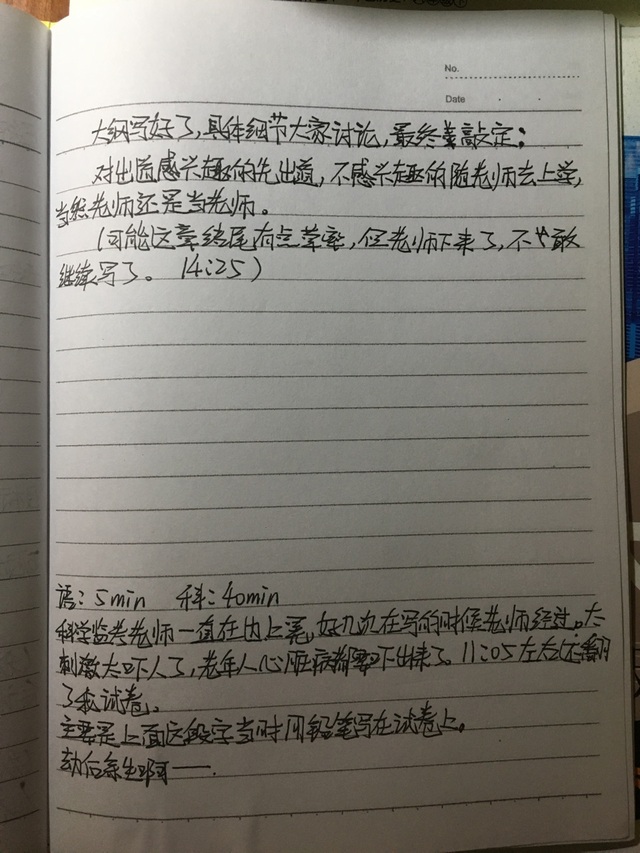 No.
Date
大纲写好了,具体细节大家讨论,最终敲定:
对出道感兴趣的先出道,不感兴趣的随老师去上学,
当然老师还是当老师。
(可能这章结尾有点草率,但老师下来了,不敢
继续写了。 14:25)
语:5min 科:40min
科学监考老师一直在边上晃,好几次在写的时候老师经过。太
刺激太吓人了,老年人心脏病都要吓出来了。11:05左右还翻
了我试卷。
主要是上面这段字当时用铅笔写在试卷上。
劫后余生啊——.